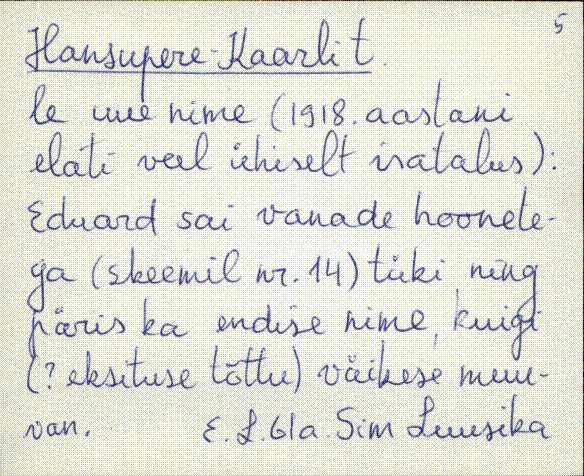 5
Hansupere-Kaarli t.
le uue nime (1918. aastani
elati veel ühiselt isatalus):
Eduard sai vanade hoonete-
ga (skeemil nr. 14) tüki ning
päris ka endise nime, kuigi
(? eksituse tõttu) väikese muu-
van. E. L. 61a. Sim Luusika